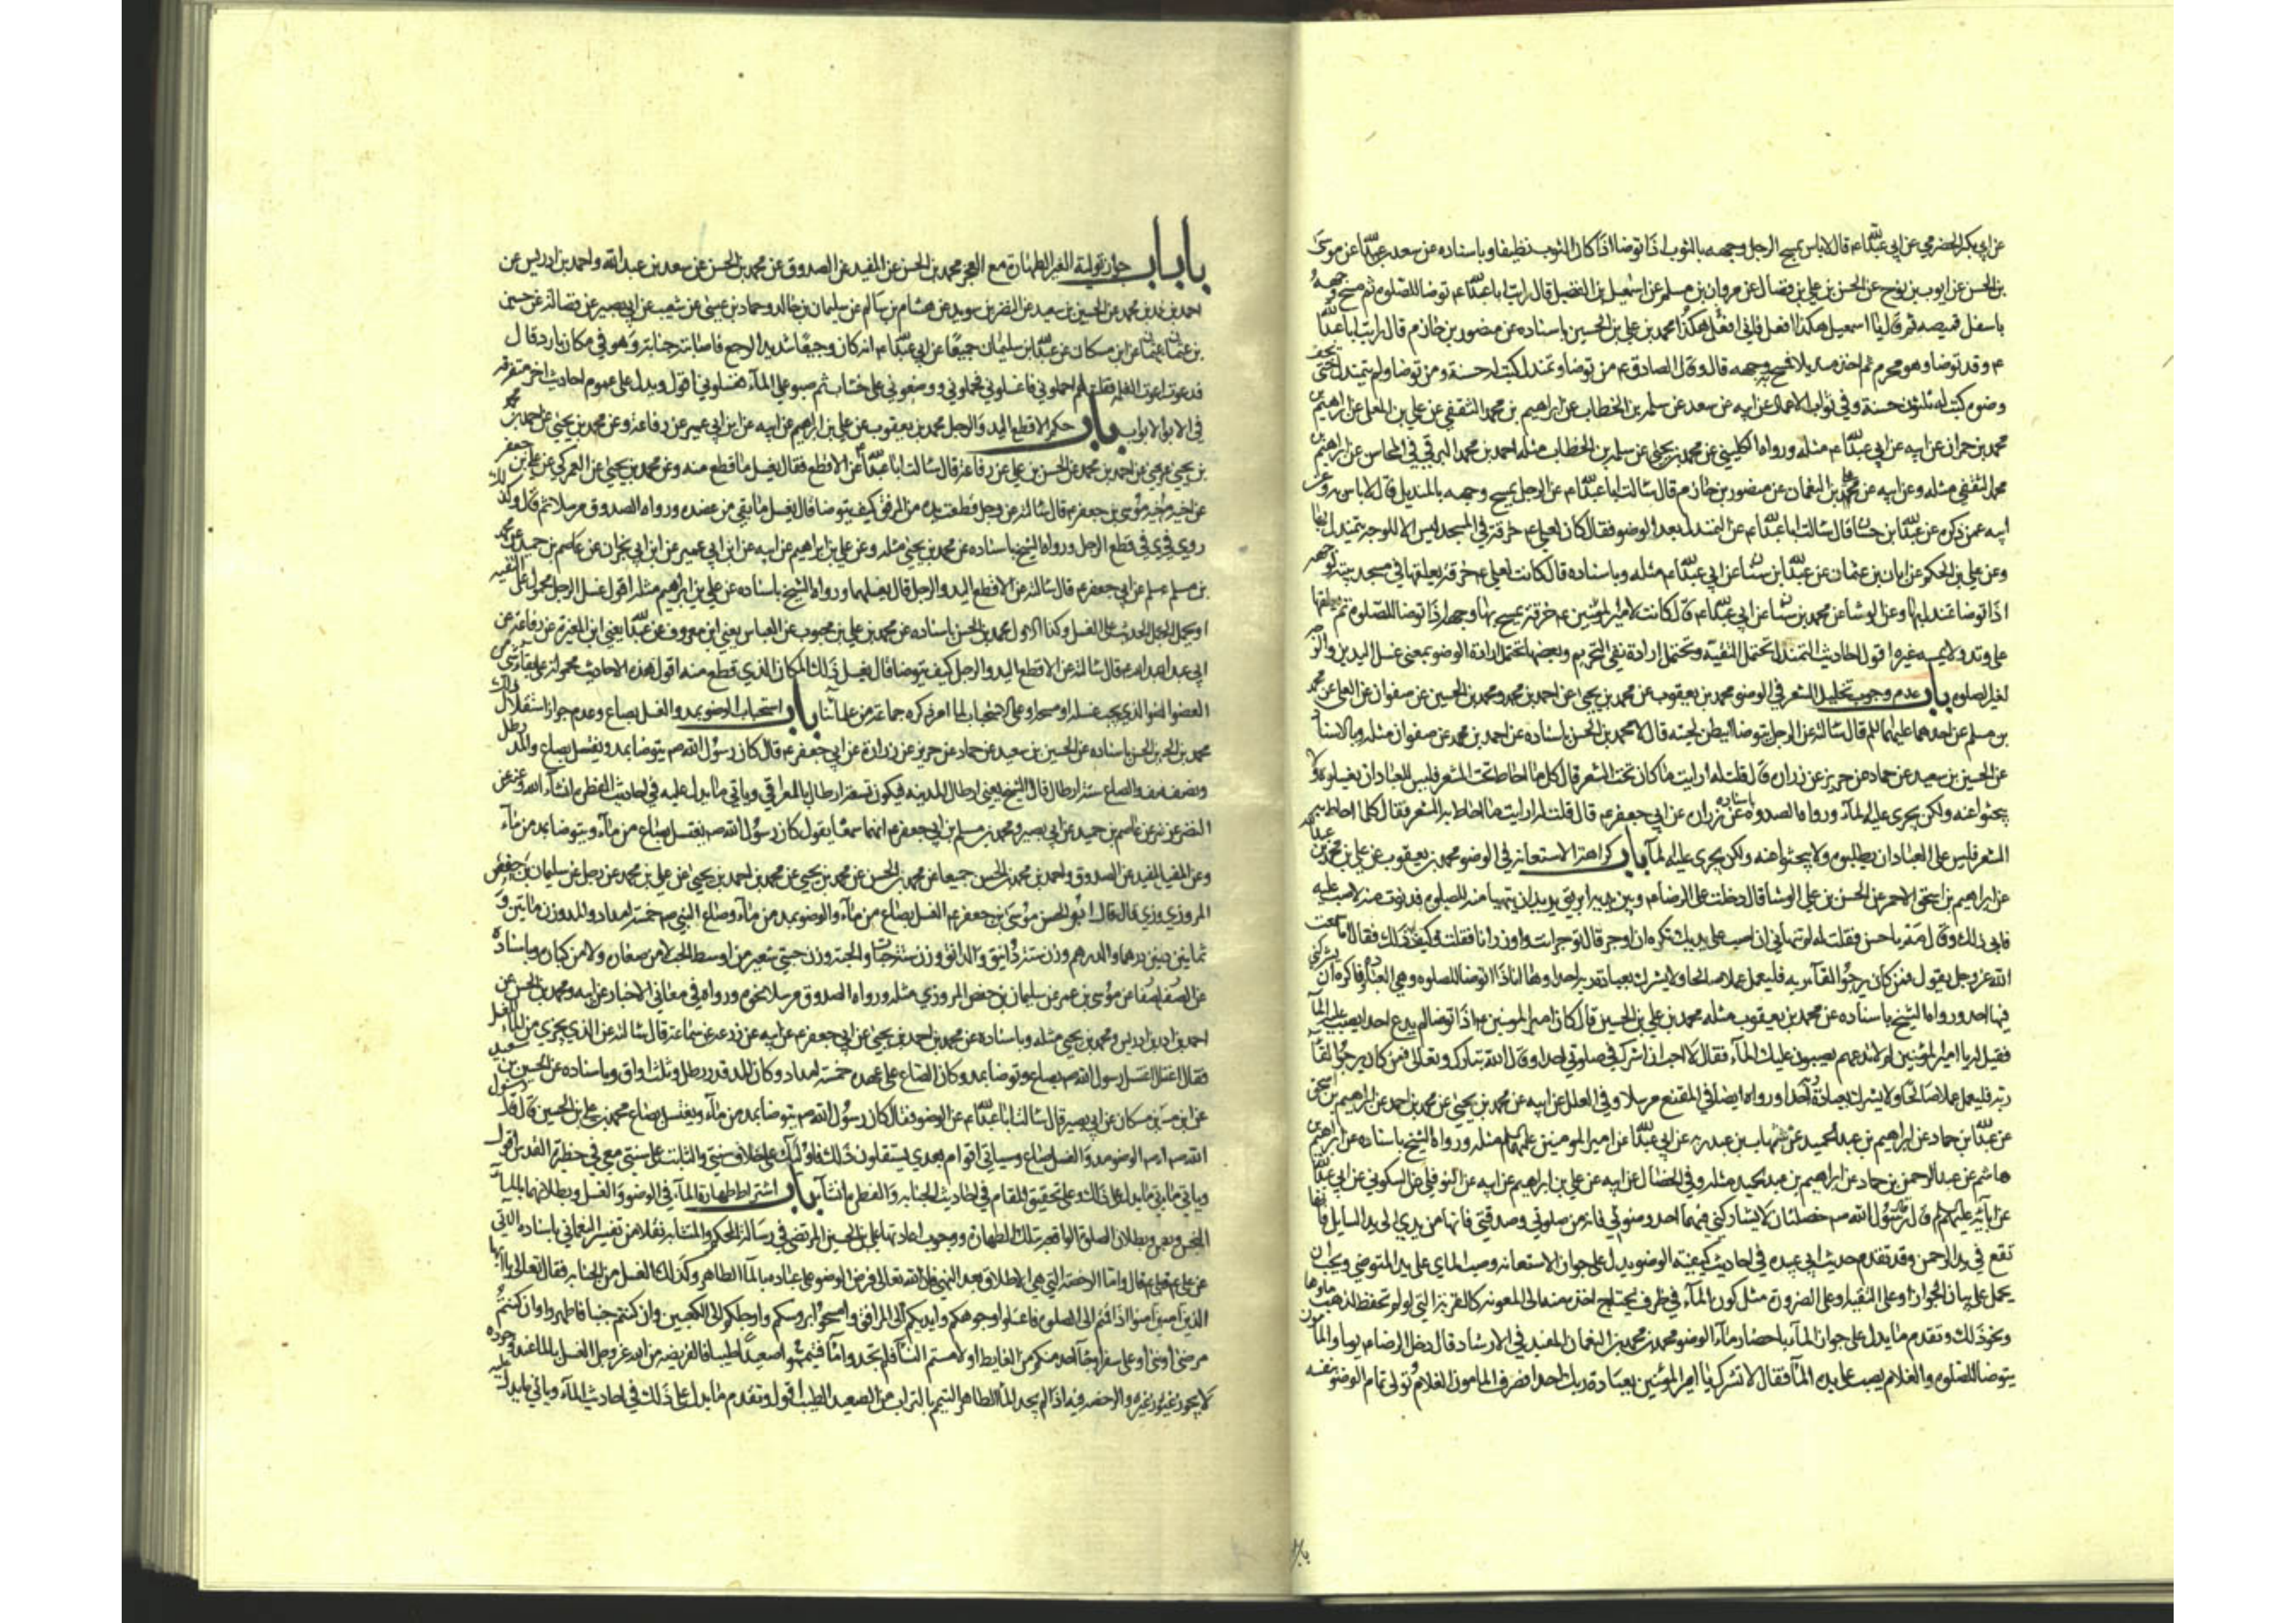 عن ابي بكر الحضرمي عن ابي عبدالله ع قال لا باس بمسح الرجل وجهه بالثوب اذا توضا اذا كان الثوب نظيفا وباسناده عن سعد بن عبدالله عن موسى
بن الحسن عن ايوب بن نوح عن الحسن بن علي بن فضال عن مروان بن مسلم عن اسمعيل بن الفضل قال رايت ابا عبدالله ع توضا للصلوة ثم مسح وجهه
باسفل قميصه ثم قال يا اسمعيل افعل هكذا فاني هكذا افعل محمد بن علي بن الحسين باسناده عن منصور بن حازم قال رايت ابا عبدالله
ع وقد توضا وهو محرم ثم اخذ منديلا فمسح به وجهه قال وقال الصادق ع من توضا وتمندل كتبت له حسنة ومن توضا ولم يتمندل حتى يجف
وضوءه كتب له ثلثون حسنة وفي ثواب الاعمال عن ابيه عن سعد عن سلمة بن الخطاب عن ابراهيم بن محمد الثقفي عن علي بن المعلى عن ابراهيم بن
محمد بن حمران عن ابيه عن ابي عبدالله ع مثله ورواه الكليني عن محمد بن يحيى عن سلمة بن الخطاب مثله احمد بن محمد البرقي في المحاسن عن ابراهيم بن
محمد الثقفي مثله وعن ابيه عن محمد بن النعمان عن منصور بن حازم قال سالت ابا عبدالله ع عن الرجل يمسح وجهه بالمنديل قال لا باس به وعن
ابيه عمن ذكره عن عبدالله بن سنان قال سالت ابا عبدالله ع عن التمندل بعد الوضوء فقال كان لعلي ع خرقة في المسجد ليس الا للوجه يتمندل بها
وعن علي بن الحكم عن ابان بن عثمان عن عبدالله بن سنان عن ابي عبدالله ع مثله وباسناده قال كانت لعلي ع خرقة يعلقها في مسجد بيته لوجهه
اذا توضا تمندل بها وعن الوشا عن محمد بن سنان عن ابي عبدالله ع قال كانت لامير المؤمنين ع خرقة يمسح بها وجهه اذا توضا للصلوة ثم يعلقها
على وتد ولا يمسه غيره اقول احاديث التمندل تحتمل التقية وتحتمل ارادة نفي التحريم وبعضها تحتمل ارادة الوضوء بمعنى غسل اليدين والوجه
لغير الصلوة باب عدم وجوب تخليل الشعر في الوضوء محمد بن يعقوب عن محمد بن يحيى عن احمد بن محمد ومحمد بن الحسين عن صفوان عن العلا عن محمد
بن مسلم عن احدهما عليهما السلم قال سالته عن الرجل يتوضا ايبطن لحيته قال لا محمد بن الحسن باسناده عن احمد بن محمد عن صفوان مثله وبالاسناد
عن الحسين بن سعيد عن حماد عن حريز عن زرارة قال قلت له ارايت ما كان تحت الشعر قال كل ما احاط به الشعر فليس للعباد ان يغسلوه ولا
يبحثوا عنه ولكن يجرى عليه الماء ورواه الصدوق باسناده عن زرارة عن ابي جعفر ع قال قلت له ارايت ما احاط به الشعر فقال كلما احاط به
الشعر فليس على العباد ان يطلبوه ولا يبحثوا عنه ولكن يجرى عليه الماء باب كراهة الاستعانة في الوضوء محمد بن يعقوب عن علي بن محمد بن عبدالله
عن ابراهيم بن اسحق الاحمر عن الحسن بن علي الوشا قال دخلت على الرضا ع وبين يديه ابريق يريد ان يتهيا منه للصلوة فدنوت منه لاصب عليه
فابى ذلك وقال مه يا حسن فقلت له لم تنهاني ان اصب على يديك تكره ان اوجر قال توجر انت واوزر انا فقلت وكيف ذلك فقال اما سمعت
الله عز وجل يقول فمن كان يرجوا لقاء ربه فليعمل عملا صالحا ولا يشرك بعبادة ربه احدا وها انا ذا اتوضا للصلوة وهي العبادة فاكره ان يشركني
فيها احد ورواه الشيخ باسناده عن محمد بن يعقوب مثله محمد بن علي بن الحسين قال كان امير المؤمنين ع اذا توضا لم يدع احدا يصب عليه الماء
فقيل له يا امير المؤمنين لم لا تدعهم يصبون عليك الماء فقال لا احب ان اشرك في صلوتي احدا وقال الله تبارك وتعالى فمن كان يرجوا لقاء
ربه فليعمل عملا صالحا ولا يشرك بعبادة ربه احدا ورواه ايضا في المقنع مرسلا وفي العلل عن ابيه عن محمد بن يحيى عن محمد بن احمد عن ابراهيم بن اسحق
عن عبدالله بن حماد عن ابراهيم بن عبد الحميد عن شهاب بن عبد ربه عن ابي عبدالله عن امير المومنين عليهما السلم مثله ورواه الشيخ باسناده عن ابراهيم بن
هاشم عن عبد الرحمن بن حماد عن ابراهيم بن عبد الحميد مثله وفي الخصال عن ابيه عن علي بن ابراهيم عن ابيه عن النوفلي عن السكوني عن ابي عبدالله
عن ابائه عليهم السلم قال قال رسول الله ص خصلتان لا احب ان يشاركني فيهما احد وضوئي فانه من صلوتي وصدقتي فانها من يدي الى يد السايل فانها
تقع في يد الرحمن وقد تقدم حديث ابي عبيده في احاديث كيفية الوضوء يدل على جواز الاستعانة وصب الماء على يد المتوضي ويجب ان
يحمل على بيان الجواز او على التقية وعلى الضرورة مثل كون الماء في ظرف يحتاج اخذه منه الى المعونة كالقربة التي لو لم تحفظ لذهب ماوها
ونحو ذلك وتقدم ما يدل على جواز الامر باحضار ماء الوضوء محمد بن محمد بن النعمان المفيد في الارشاد قال دخل الرضا ع يوما والمامون
يتوضا للصلوة والغلام يصب على يده الماء فقال لا تشرك يا امير المؤمنين بعبادة ربك احدا فصرف المامون الغلام وتولى تمام الوضوء بنفسه
باب جواز تولية الغير الطهارة مع العجز محمد بن الحسن عن المفيد عن الصدوق عن محمد بن الحسن عن سعد بن عبد الله واحمد بن ادريس عن
احمد بن محمد عن الحسين بن سعيد عن النضر بن سويد عن هشام بن سالم عن سليمان بن خالد وحماد بن عيسى عن شعيب عن ابي بصير عن فضالة عن حسين
بن عثمان عن ابن مسكان عن عبدالله بن سليمان جميعا عن ابي عبدالله ع انه كان وجعا شديد الوجع فاصابته جنابة وهو في مكان بارد قال
فدعوت الغلمة فقلت لهم احملوني فاغسلوني فحملوني ووضعوني على خشبات ثم صبوا علي الماء فغسلوني اقول ويدل على عموم احاديث اخر متفرقة
في الابواب باب حكم الاقطع اليد والرجل محمد بن يعقوب عن علي بن ابراهيم عن ابيه عن ابن ابي عمير عن رفاعة وعن محمد بن يحيى عن احمد بن محمد
عن الحسن بن علي عن رفاعة قال سالت ابا عبدالله ع عن الاقطع فقال يغسل ما قطع منه وعن محمد بن يحيى عن العمركي عن علي بن جعفر
عن اخيه موسى بن جعفر ع قال سالته عن رجل قطعت يده من المرفق كيف يتوضا قال يغسل ما بقي من عضده ورواه الصدوق مرسلا ثم قال وكذلك
روي في قطع الرجل ورواه الشيخ باسناده عن محمد بن يحيى مثله وعن علي بن ابراهيم عن ابيه عن ابن ابي عمير عن ابن ابي نجران عن عاصم بن حميد عن محمد
بن مسلم عن ابي جعفر ع قال سالته عن الاقطع اليد والرجل قال يغسلهما ورواه الشيخ باسناده عن علي بن ابراهيم مثله اقول غسل الرجل محمول على التقية
محمد بن الحسن باسناده عن محمد بن علي بن محبوب عن العباس يعني ابن معروف عن عبدالله يعني ابن المغيرة عن رفاعة عن
ابي عبد الله ع قال سالته عن الاقطع اليد والرجل كيف يتوضا قال يغسل ذلك المكان الذي قطع منه اقول هذه الاحاديث محمولة على بقاء شيء من
باب استحباب الوضوء بمد والغسل بصاع وعدم جواز استقلال ذلك
محمد بن الحسن باسناده عن الحسين بن سعيد عن حماد عن حريز عن زرارة عن ابي جعفر ع قال كان رسول الله ص يتوضا بمد ويغتسل بصاع والمد رطل
ونصف والصاع ستة ارطال قال الشيخ يعني ارطال المدينة فيكون تسعة ارطال بالعراقي وياتي ما يدل عليه في احاديث الفطرة انشاء الله وعنه عن
النضر عن عاصم بن حميد عن ابي بصير ومحمد بن مسلم عن ابي جعفر ع انهما سمعاه يقول كان رسول الله ص يغتسل بصاع من ماء ويتوضا بمد من ماء
وعن المفيد عن الصدوق واحمد بن محمد بن الحسن جميعا عن محمد بن الحسن عن محمد بن يحيى عن محمد بن احمد بن يحيى عن علي بن محمد عن رجل عن سليمان بن حفص
المروزي قال قال ابو الحسن موسى بن جعفر ع الغسل بصاع من ماء والوضوء بمد من ماء وصاع النبي ص خمسة امداد والمد وزن مايتين و
ثمانين درهما والدرهم وزن ستة دوانيق والدانق وزن ست حبات والحبة وزن حبتي شعير من اوسط الحب لا من صغاره ولا من كباره وباسناده
عن الصفار عن موسى بن عمر عن سليمان بن حفص المروزي مثله ورواه الصدوق مرسلا نحوه ورواه في معاني الاخبار عن ابيه ومحمد بن الحسن عن
احمد بن ادريس ومحمد بن يحيى مثله وباسناده عن محمد بن احمد بن يحيى عن ابي جعفر ع عن ابيه عن زرعة عن سماعة قال سالته عن الذي يجزي من الماء للغسل
فقال اغتسل رسول الله ص بصاع وتوضا بمد وكان الصاع على عهده خمسة امداد وكان المد قدر رطل وثلث اواق وباسناده عن الحسين بن سعيد
عن ابن مسكان عن ابي بصير قال سالت ابا عبدالله ع عن الوضوء فقال كان رسول الله ص يتوضا بمد من ماء ويغتسل بصاع محمد بن علي بن الحسين قال قال رسول
الله ص الوضوء مد والغسل صاع وسياتي اقوام بعدي يستقلون ذلك فاولئك على خلاف سنتي والثابت على سنتي معي في حظيرة القدس اقول
وياتي ما يدل على ذلك وعلى تحقيق المقام في احاديث الجنابة والفطرة انشاء الله باب اشتراط طهارة الماء في الوضوء والغسل وبطلانهما بالماء
النجس وبطلان الصلوة الواقعة بتلك الطهارة ووجوب اعادتها علي بن الحسين المرتضى في رسالة المحكم والمتشابه نقلا من تفسير النعماني باسناده الاتي
عن علي ع قال واما الرخصة التي هي الاطلاق بعد النهي فان الله تعالى فرض الوضوء على عباده بالماء الطاهر وكذلك الغسل من الجنابة فقال تعالى يا ايها
الذين امنوا اذا قمتم الى الصلوة فاغسلوا وجوهكم وايديكم الى المرافق وامسحوا برؤسكم وارجلكم الى الكعبين وان كنتم جنبا فاطهروا وان كنتم
مرضى او على سفر او جاء احد منكم من الغايط او لامستم النساء فلم تجدوا ماء فتيمموا صعيدا طيبا فالفريضة من الله عز وجل الغسل بالماء عند وجوده
لا يجوز غيره والرخصة فيه اذا لم يجد الماء الطاهر التيمم بالتراب من الصعيد الطيب اقول وتقدم ما يدل على ذلك في احاديث الماء وياتي ما يدل عليه